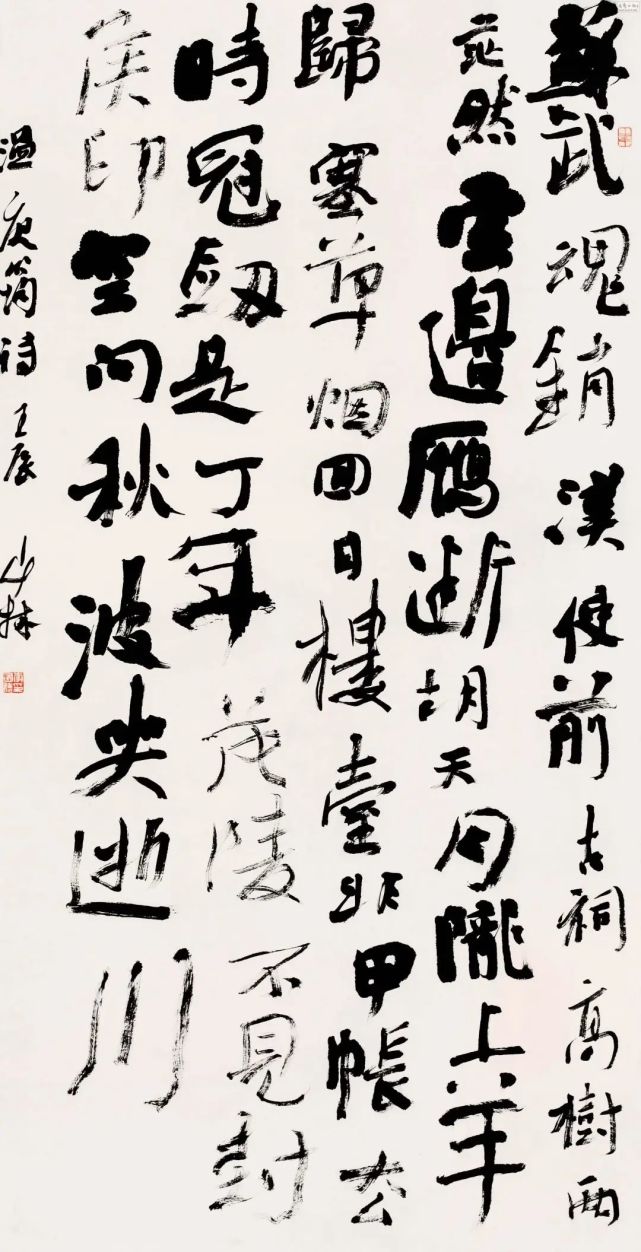 蘇武魂銷漢使前古祠高樹兩
茫然雲邊鴈断胡天月隴上羊
歸塞草烟回日樓臺非甲帳去
時冠劔是丁年茂陵不見封
侯印空向秋波哭逝川
温庭筠诗 壬辰